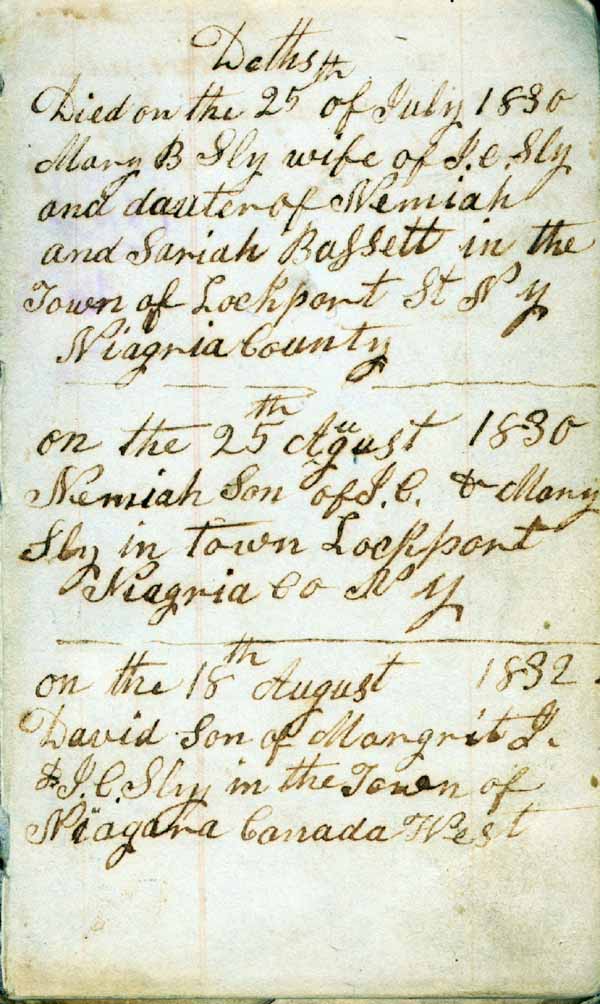 Deths
Died on the 25th of July 1830
Mary B Sly wife of J. C. Sly
and dauter of Nemiah
and Sariah Bassett in the
Town of Lockport St N y
Niagria County
on the 25th August 1830
Nemiah Son of J. C. & Mary
Sly in town Lockport
Niagria Co N y
on the 18th August 1832.
David Son of Margrit J.
& J. C. Sly in the Town of
Niagara Canada West